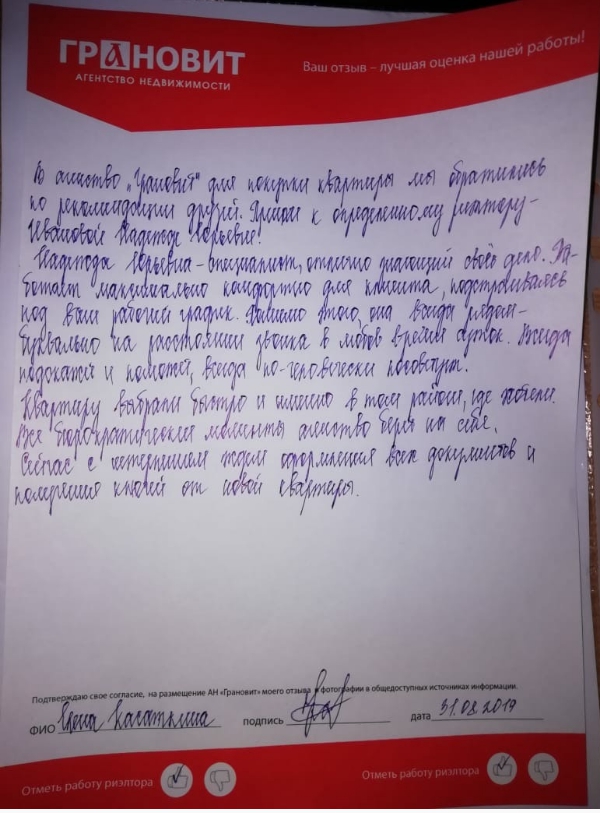 ГРАНОВИТ
АГЕНТСТВО НЕДВИЖИМОСТИ
Ваш отзыв – лучшая оценка нашей работы!
В агенство „Грановит" для покупки квартиры мы обратились
по рекомендации друзей. Пришли к определенному риэлтору-
Ивановой Надежде Юрьевне!
Надежда Юрьевна-специалист, отлично знающий своё дело. Ра-
ботает максимально комфортно для клиента, подстраиваясь
под ваш рабочий график. Помимо этого, она всегда рядом-
буквально на расстоянии звонка в любое время суток. Всегда
подскажет и поможет, всегда по-человечески
Квартиру выбрали быстро и именно в том районе, где хотели.
Все бюрократические моменты агенство берет на себя.
Сейчас с нетерпением ждем оформления всех документов и
получения ключей от новой квартиры.
Подтверждаю свое согласие, на размещение АН «Грановит» моего отзыва и фотографии в общедоступных источниках информации.
ФИО Елена подпись дата 31.08.2019
Отметь работу риэлтора
Отметь работу риэлтора